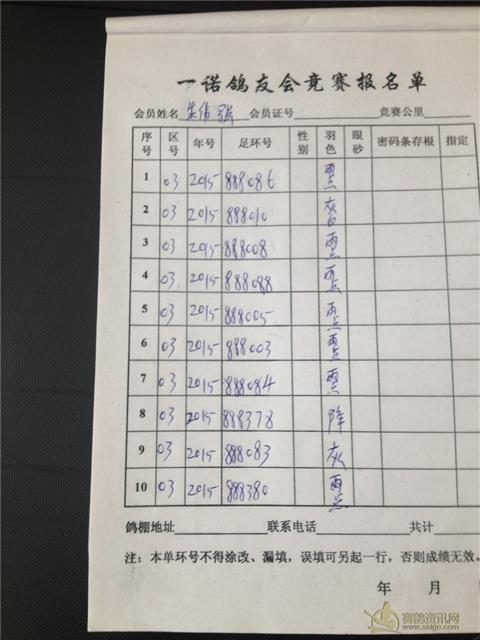 一诺鸽友会竞赛报名单
会员姓名 朱伟强 会员证号 竞赛公里
序号 区号 年号 足环号 性别 羽色 眼砂 密码条存根 指定
1 03 2015 888086 雨点
2 03 2015 888010 灰白
3 03 2015 888008 雨点
4 03 2015 888088 雨点
5 03 2015 888005 雨点
6 03 2015 888003 雨点
7 03 2015 888084 雨点
8 03 2015 888378 降
9 03 2015 888083 灰
10 03 2015 888380 雨点
鸽棚地址 联系电话 共计
注：本单环号不得涂改、漏填，误填可另起一行，否则成绩无效。
年 月
赛鸽资讯网
www.saige.com